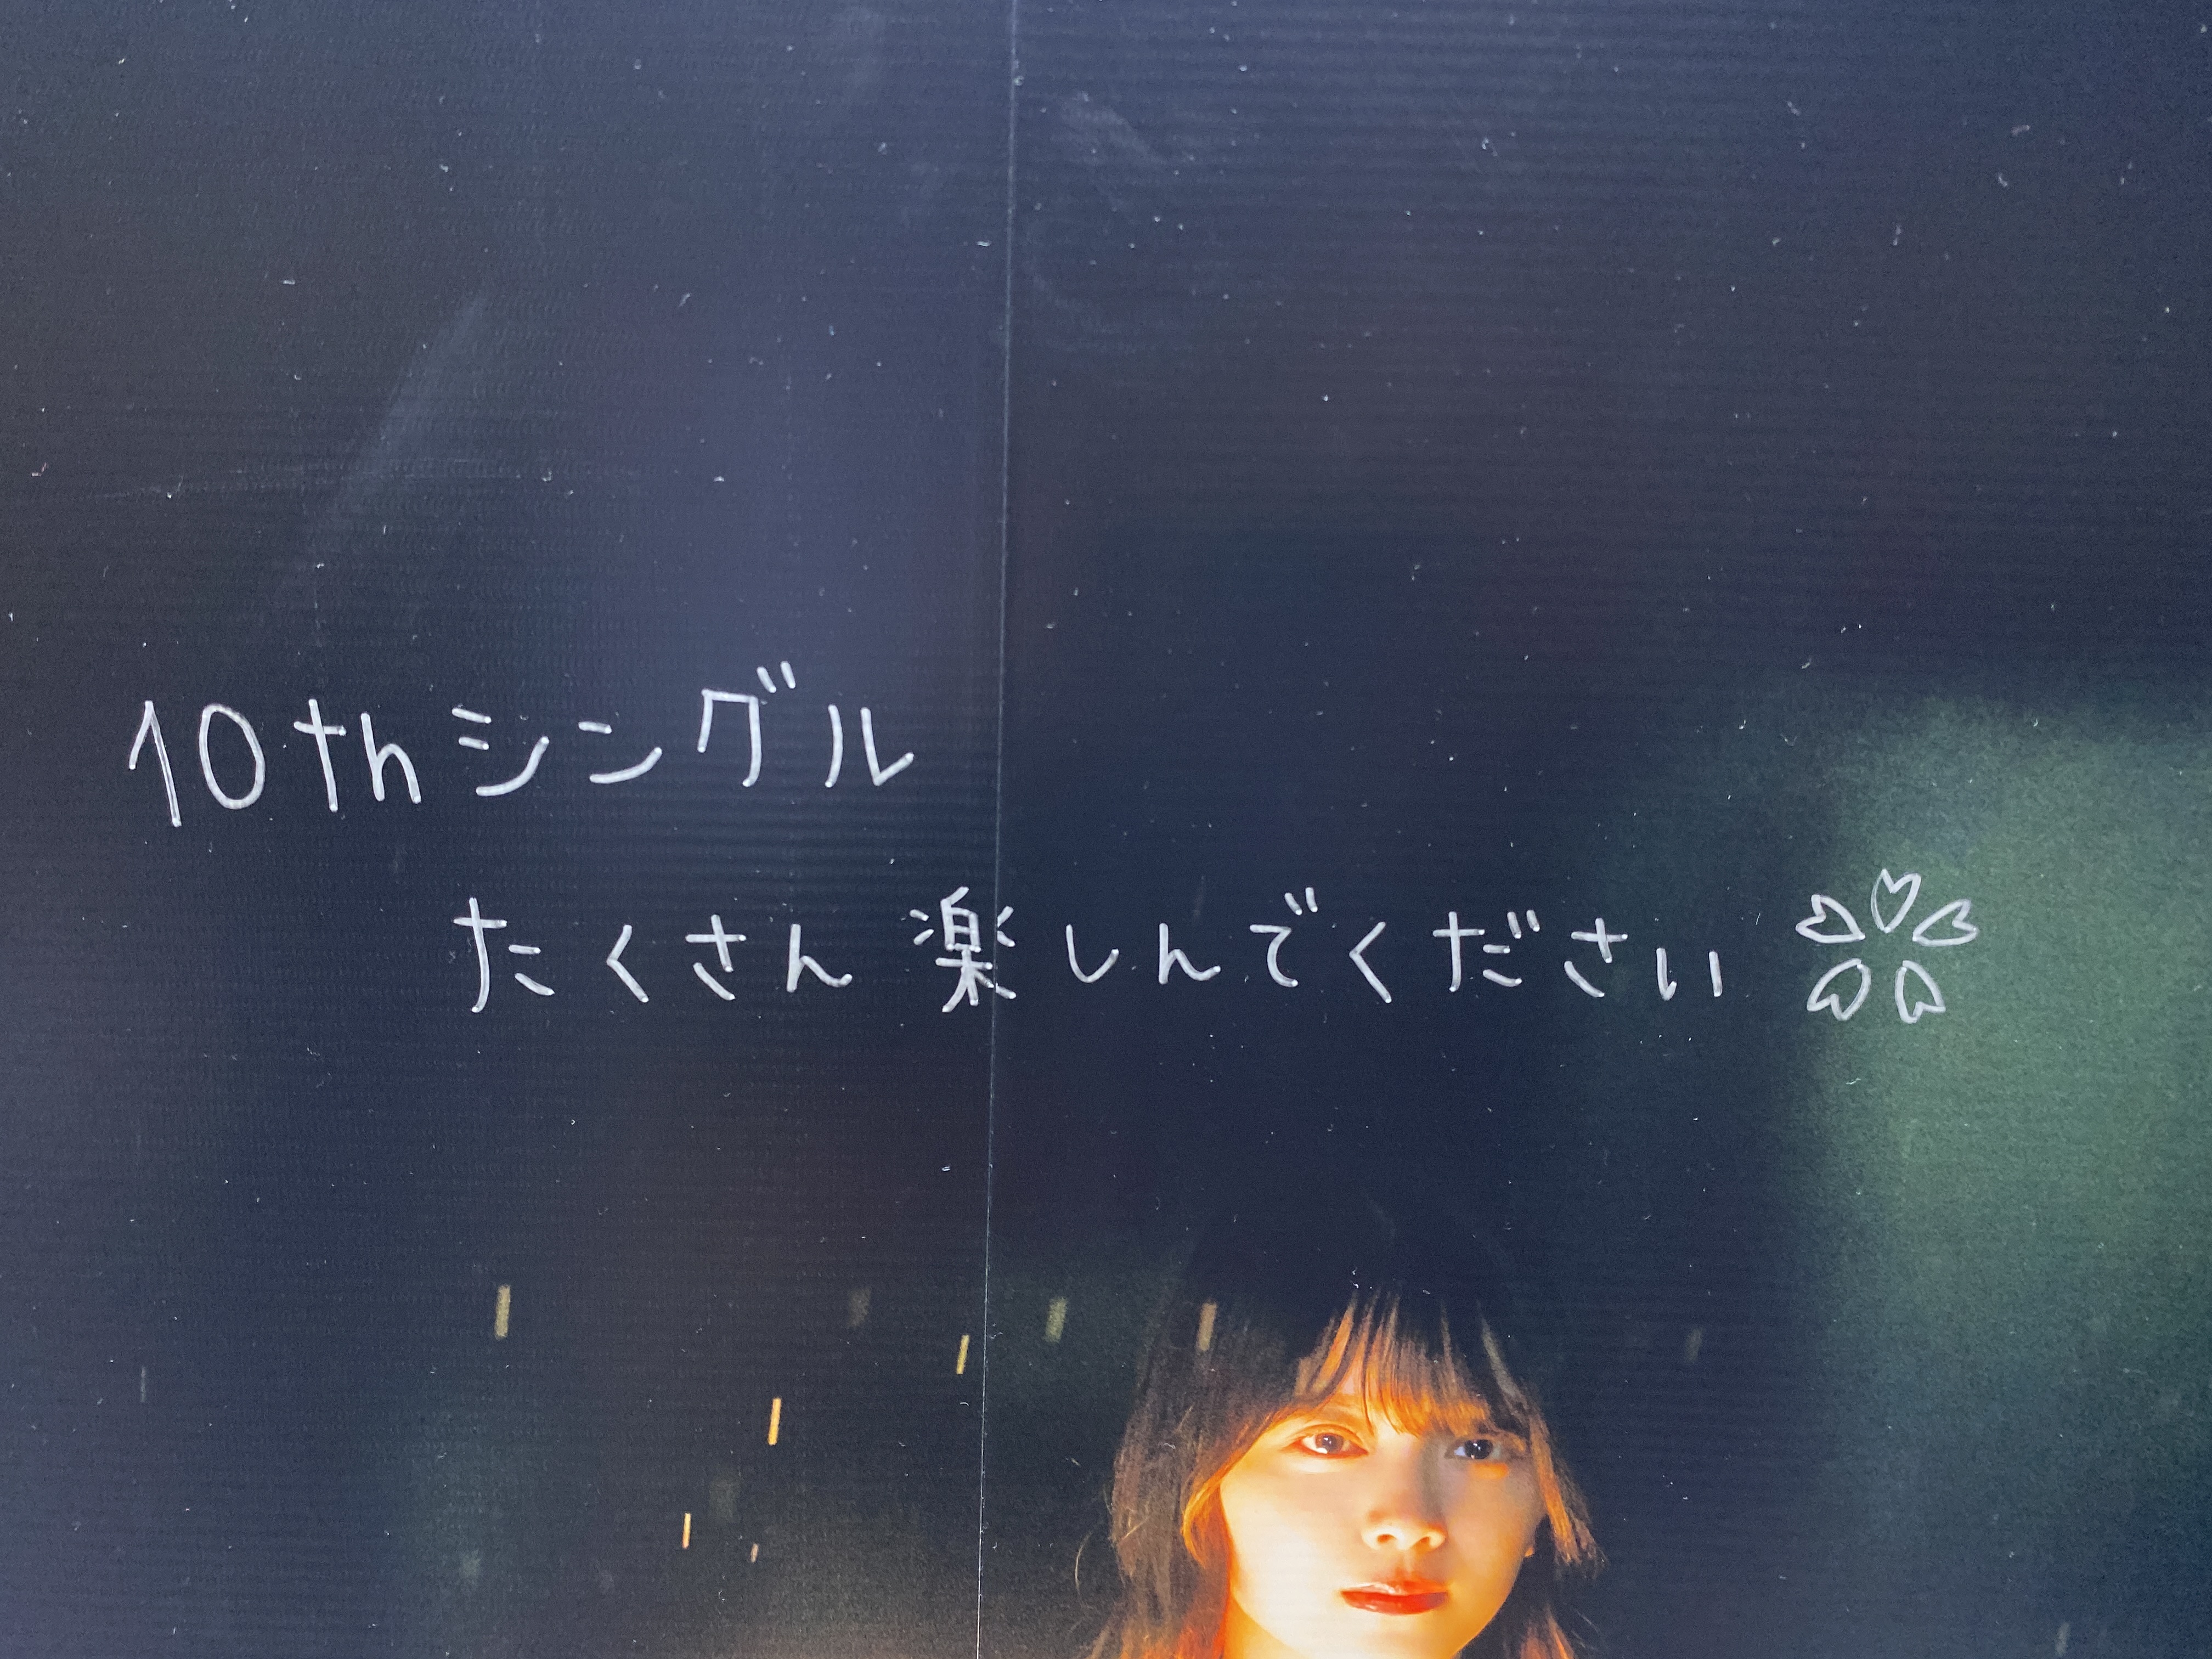 10thシングル
たくさん楽しんでください